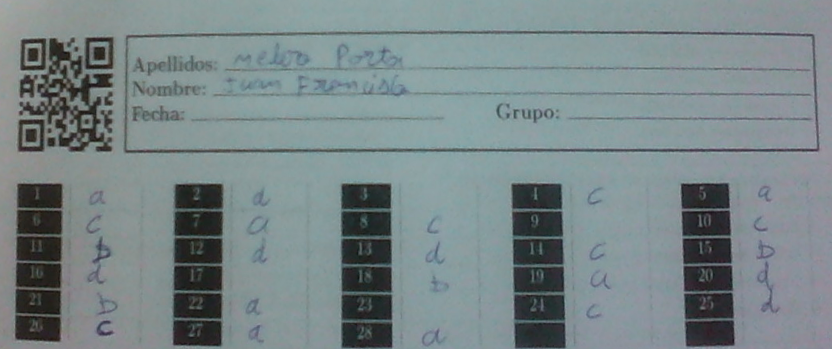 Apellidos: Melero Porta
Nombre: Juan Francisco
Fecha: Grupo:
1 a 2 d 3 4 c 5 a
6 c 7 a 8 c 9 10 c
11 b 12 d 13 d 14 c 15 b
16 d 17 18 b 19 a 20 d
21 b 22 a 23 24 c 25 d
26 c 27 a 28 a